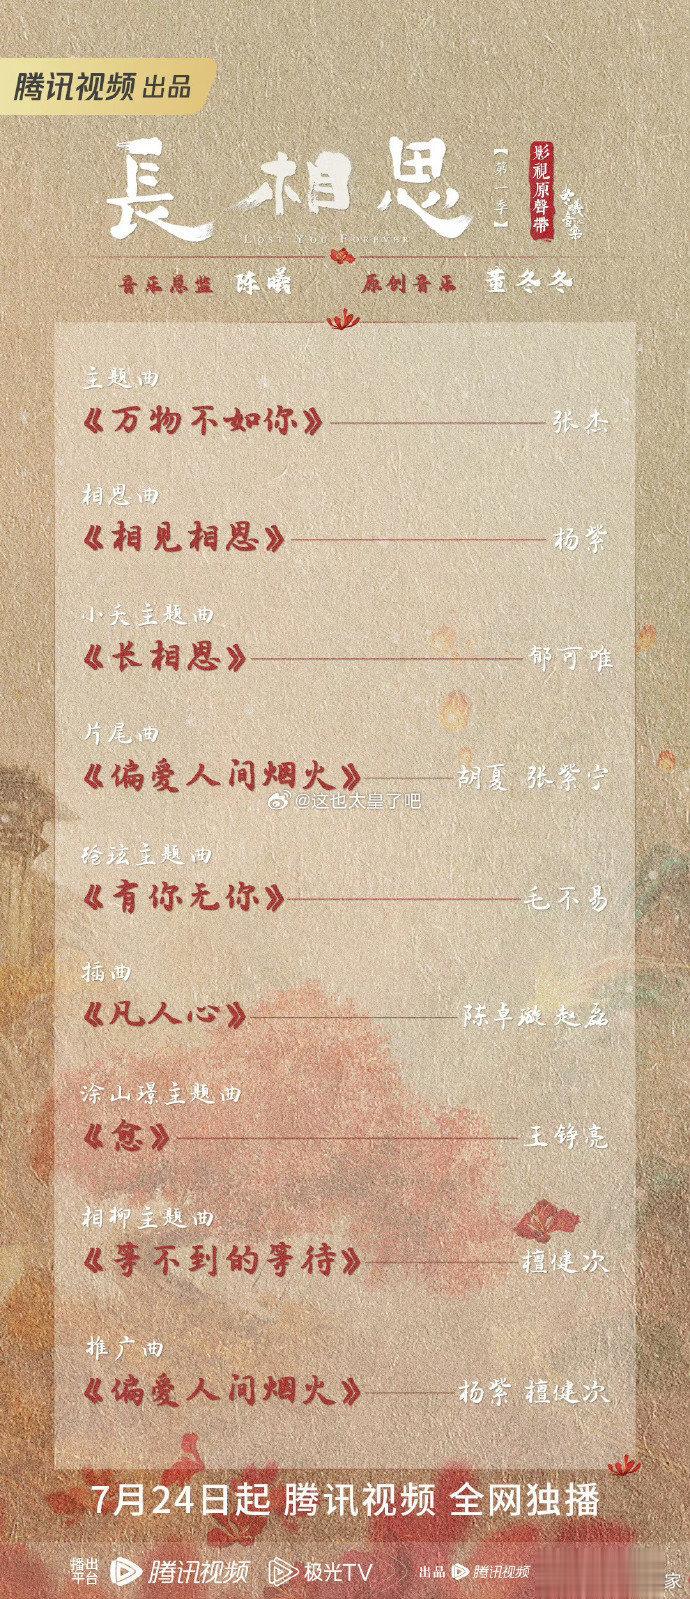 腾讯视频 出品
長相思
【第一季】
影視原聲帶
LOST YOU FOREVER
音乐总监 陈曦 原创音乐 董冬冬
主题曲
《万物不如你》 张杰
相思曲
《相见相思》 杨紫
小夭主题曲
《长相思》 郁可唯
片尾曲
《偏爱人间烟火》 胡夏 张紫宁
@这也太皇了吧
玱玹主题曲
《有你无你》 毛不易
插曲
《凡人心》 陈卓璇 赵磊
涂山璟主题曲
《愈》 王铮亮
相柳主题曲
《等不到的等待》 檀健次
推广曲
《偏爱人间烟火》 杨紫 檀健次
7月24日起 腾讯视频 全网独播
播出平台 腾讯视频 极光TV 出品 腾讯视频
家